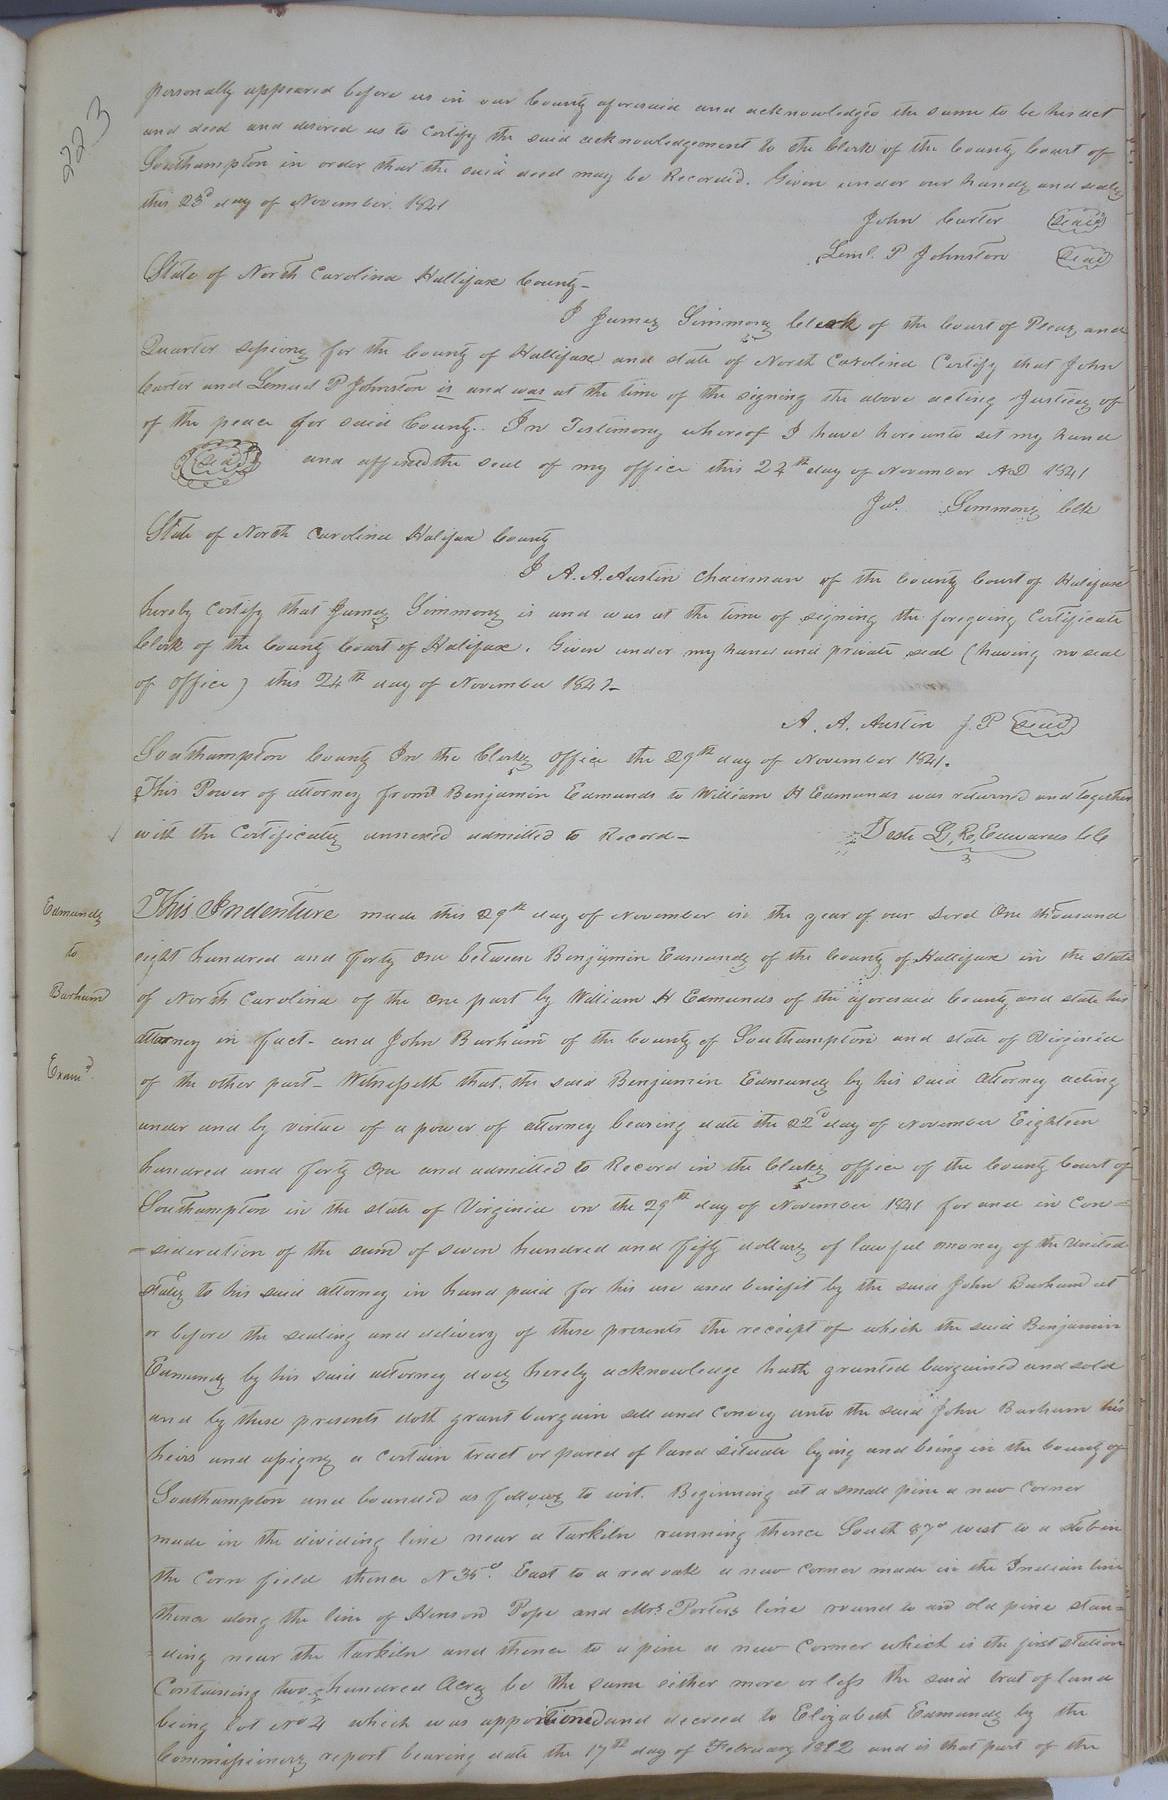 223
personally appeared before us in our County aforesaid and acknowledged the same to be his act
and deed and desired us to certify the said acknowledgement to the Clerk of the County Court of
Southampton in order that the said deed may be Recorded. Given under our hands and seals
this 23d day of November 1841
John Carter (Seal)
Leml. P Johnston (Seal)
State of North Carolina Hallifax County-
I James Simmons Clerk of the Court of Pleas and
Quarter sessions for the County of Hallifax and state of North Carolina Certify that John
Carter and Lemuel P Johnston is and was at the time of the signing the above acting Justices of
of the peace for said County. In Testimony whereof I have hereunto set my hand
(Seal) and affixed the seal of my office this 24th day of November AD 1841
Jas. Simmons Clk
State of North Carolina Halifax County
I A. A. Austin Chairman of the County Court of Halifax
hereby certify that James Simmons is and was at the time of signing the foregoing Certificate
Clerk of the County Court of Halifax. Given under my hand and private seal (having no seal
of office) this 24th day of November 1841-
A. A. Austin J. P (Seal)
Southampton County In the Clerks office the 29th day of November 1841.
This Power of attorney from Benjamin Edmunds to William H Edmunds was returned and together
with the Certificates annexed admitted to Record-
Teste L. R. Edwards CC
Edmunds
to
Barham
Examd.
This Indenture made this 29th day of November in the year of our Lord One thousand
eight hundred and forty one between Benjamin Edmunds of the County of Hallifax in the state
of North Carolina of the one part by William H Edmunds of the aforesaid County and state his
attorney in fact- and John Barham of the County of Southampton and state of Virginia
of the other part- Witnesseth that, the said Benjamin Edmunds by his said attorney acting
under and by virtue of a power of attorney bearing date the 22d day of November Eighteen
hundred and forty One and admitted to Record in the Clerks office of the County Court of
Southampton in the state of Virginia on the 29th day of November 1841 for and in Con=
=sideration of the sum of seven hundred and fifty dollars of lawful money of the United
states to his said attorney in hand paid for his use and benefit by the said John Barham at
or before the sealing and delivery of these presents the receipt of which the said Benjamin
Edmunds by his said attorney does hereby acknowledge hath granted bargained and sold
and by these presents doth grant bargain sell and convey unto the said John Barham his
heirs and assigns a certain tract or parcel of land situate lying and being in the County of
Southampton and bounded as follows to wit. Beginning at a small pine a new Corner
made in the dividing line near a tarkiln running thence South 87° west to a stob in
the Corn field thence N 35°. East to a red oak a new Corner made in the Indian line
thence along the line of Henson Pope and Mrs Porters line round to an old pine stan=
=ding near the tarkiln and thence to a pine a new Corner which is the first station
Containing two hundred Acres be the same either more or less the said trat of land
being lot No 4 which was apportioned and decreed to Elizabeth Edmunds by the
Commissioners report bearing date the 17th day of February 1812 and is that part of the